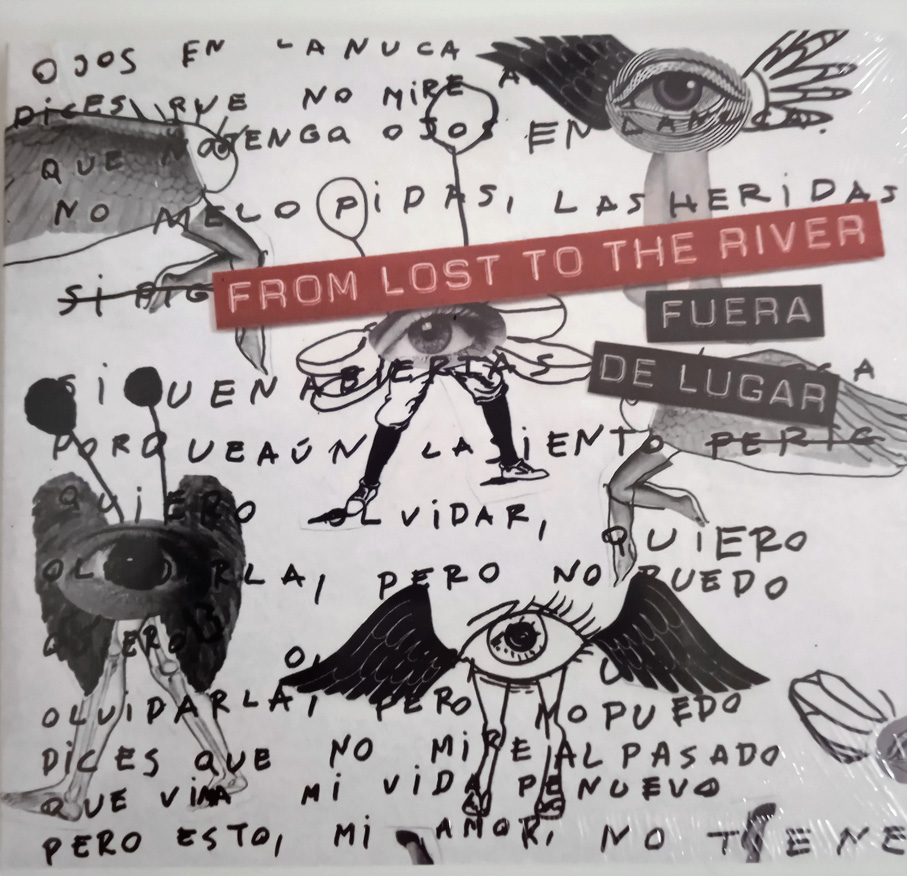 OJOS EN LA NUCA
DICES QUE NO MIRE A
QUE NO TENGA OJOS EN LA NUCA.
NO ME LO PIDAS, LAS HERIDAS
FROM LOST TO THE RIVER
FUERA
DE LUGAR
SIGUEN ABIERTAS
PORQUE AÚN LA SIENTO
QUIERO OLVIDAR, QUIERO
OLVIDARLA, PERO NO PUEDO
QUIERO
OLVIDARLA, PERO NO PUEDO
DICES QUE NO MIRE AL PASADO
QUE VIVA MI VIDA DE NUEVO
PERO ESTO, MI AMOR, NO TIENE